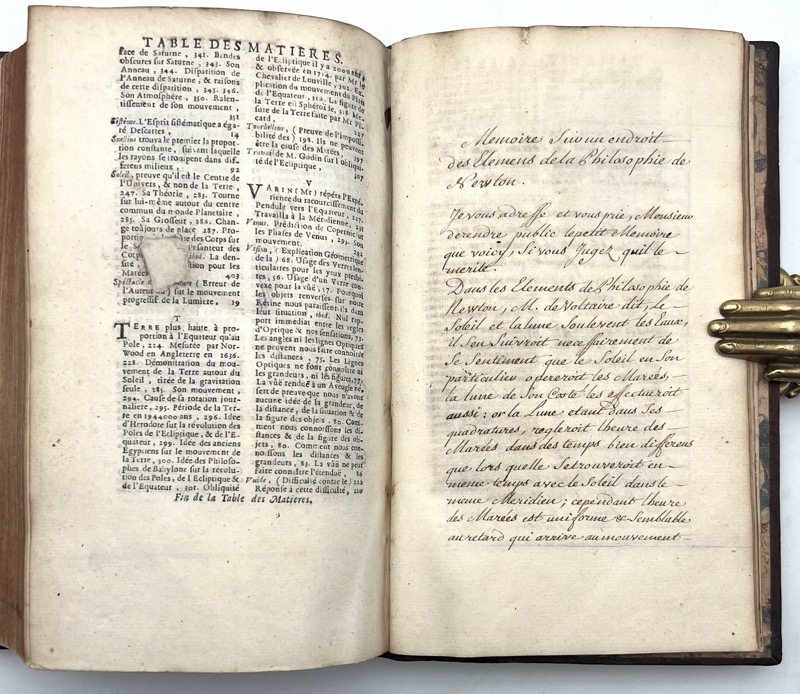 TABLE DES MATIERES.
face de Saturne, 341. Bandes
obscures sur Saturne, 343. Son
Anneau, 344. Disparition de
l'Anneau de Saturne, & raisons
de cette disparition, 345. 346.
Son Atmosphére, 350. Ralen-
tissement de son mouvement,
351
Sistême. L'Esprit sistématique a éga-
ré Descartes, 14
Snellius trouva le premier la propor-
tion constante, suivant laquelle
les rayons se rompent dans dif-
ferens milieux, 92
Soleil, preuve qu'il est le Centre de
l'Univers, & non de la Terre,
247. Sa Théorie, 283. Tourne
sur lui-même autour du centre
commun du monde Planetaire,
285. Sa Grosseur, 286. Chan-
ge toûjours de place, 287. Pro-
des Corps sur
le
Corp ibid. La den-
sité, pour les
Marées 408
Spectacle (Erreur de
l'Auteur sur le mouvement
progressif de la Lumiere, 19
T
TERRE plus haute à pro-
portion à l'Equateur qu'au
Pole, 224. Mesurée par Nor-
Wood en Angleterre en 1636.
228. Démonstration du mou-
vement de la Terre autour du
Soleil, tirée de la gravitation
seule, 285. Son mouvement,
294. Cause de sa rotation jour-
naliere, 295. Période de la Ter-
re en 1944000 ans, 296. Idée
d'Herodote sur la révolution des
Poles de l'Ecliptique, & de l'E-
quateur, 299. Idée des anciens
Egyptiens sur le mouvement de
la Terre, 300. Idée des Philoso-
phes de Babylone sur la révolu-
tion des Poles, de l'Ecliptique &
de l'Equateur, 301. Obliquité
de l'Ecliptique il y a 2000 ans,
& observée en 1714. par Mr le
Chevalier de Louville, 302. Ex-
plication du mouvement du Plan
de l'Equateur, 312. La figure de
la Terre en Sphéroïde, 318. Me-
sure de la Terre faite par Mr Pi-
card, 227
Tourbillons, (Preuve de l'impossi-
bilité des) 198. Ils ne peuvent
être la cause des Marées, 397
Travail de M. Godin sur l'obliqui-
té de l'Ecliptique, 307
V
VARIN (Mr) répéte l'Expé-
rience du racourcissement du
Pendule vers l'Equateur, 217.
Travailla à la Méridienne, 231
Venus. Prédiction de Copernic sur
les Phases de Venus, 293. Son
mouvement, 292
Vision, (Explication Géométrique
de la) 68. Usage des Verres len-
ticulaires pour les yeux presbi-
tes, 56. Usage d'un Verre con-
vexe pour la vûë, 57. Pourquoi
les objets renversés sur notre
Rétine nous paraissent ils dans
leur situation, ibid. Nul rap-
port immédiat entre les regles
d'Optique & nos sensations, 73.
Les angles ni les lignes Optiques
ne peuvent nous faire connoître
les distances, 75. Les Lignes
Optiques ne font connaître ni
les grandeurs, ni les figures, 77.
La vûë renduë à un Aveugle né
sert de preuve que nous n'avons
aucune idée de la grandeur, de
la distance, de la situation & de
la figure des objets, 80. Com-
ment nous connaissons les dis-
tances & la figure des ob-
jets, 80. Comment nous con-
noissons les distances & les
grandeurs, 83. La vûë ne peut
faire connoître l'étenduë, 16
Vuide, (Difficulté contre le) 220
Réponse à cette difficulté, 220
Fin de la Table des Matieres.
Memoire Sur un endroit
des Elemens de la Philosophie de
Newton.
Je vous adresse et vous prie, Monsieur
de rendre public le petit Memoire
que voicy, Si vous Jugez qu'il le
merite.
Dans les Elements de Philosophie de
Newton, M. de Voltaire dit, le
Soleil et la lune Soulevent les Eaux,
il s'en Suivroit necessairement de
Se Sentiment que le Soleil en Son
particulier opereroit les Marées,
la lune de Son Coste les effectueroit
aussi: or la Lune etant dans Ses
quadratures, regleroit l'heure des
Marées dans des temps bien differens
que lors quelle Se trouveroit en
meme temps avec le Soleil dans le
meme Meridien; cependant l'heure
des Marées est uniforme & Semblable
au retard qui arrive au mouvement